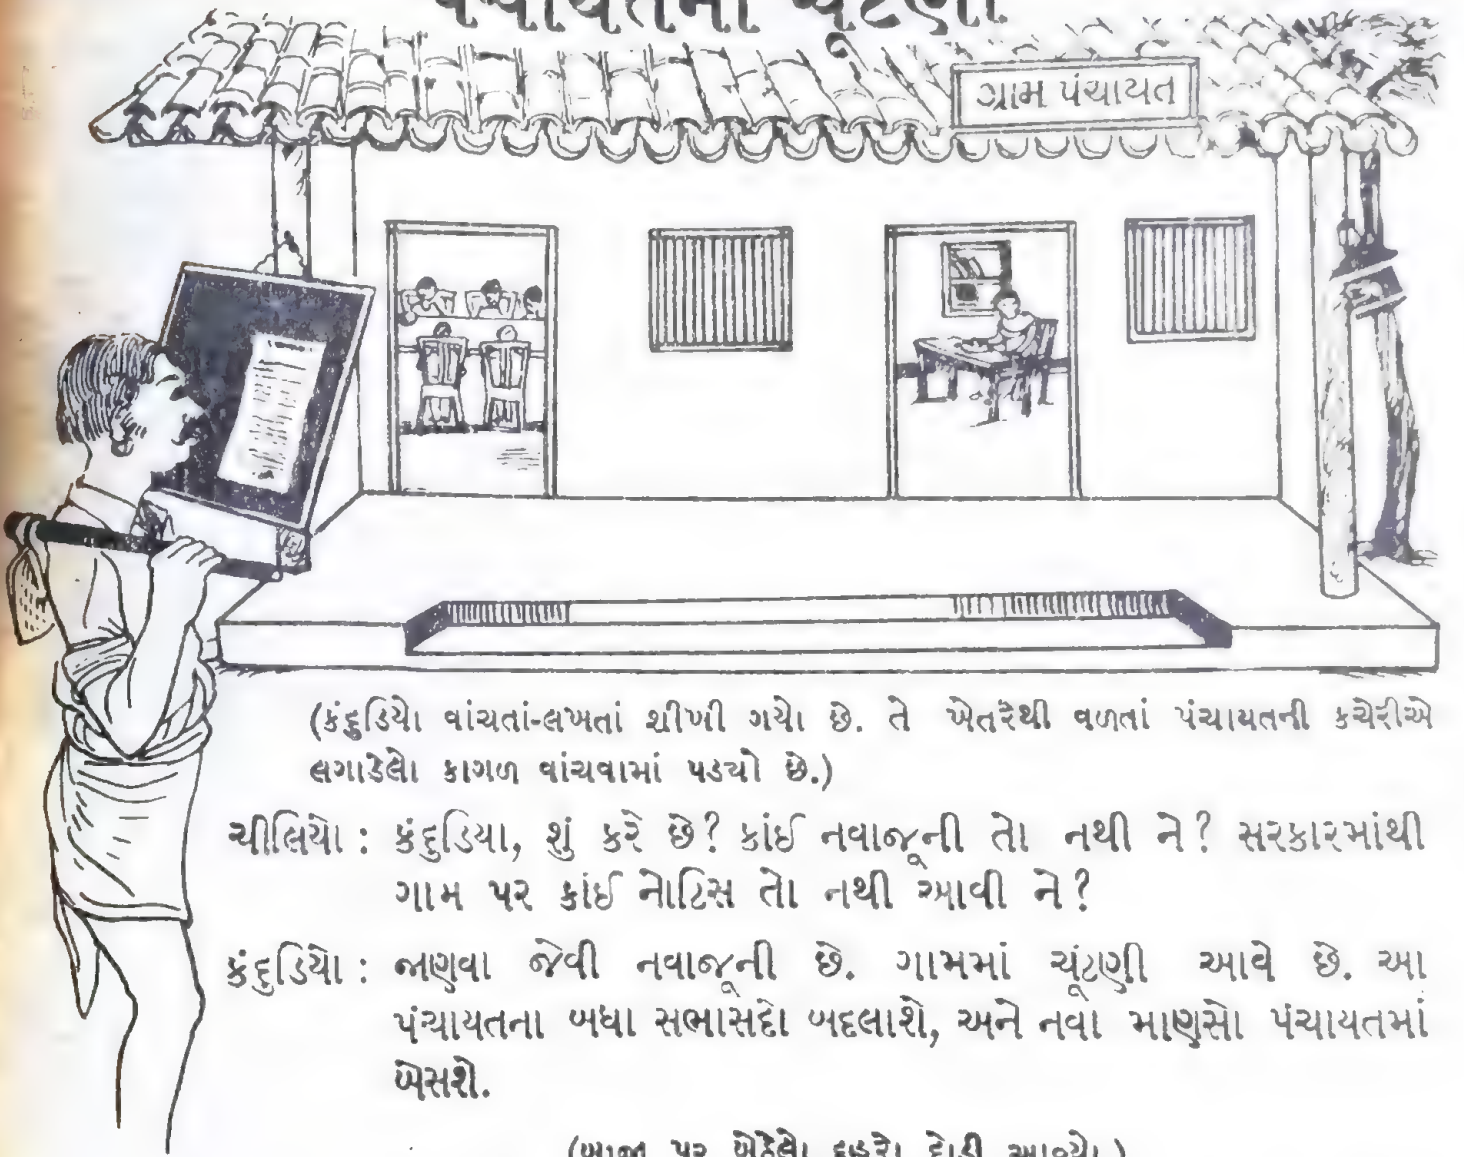 પંચાયતની ચૂંટણી
ગ્રામ પંચાયત
(કંદુડિયો વાંચતાં-લખતાં શીખી ગયો છે. તે ખેતરેથી વળતાં પંચાયતની કચેરીએ
લગાડેલો કાગળ વાંચવામાં પડ્યો છે.)
ચીલિયો : કંદુડિયા, શું કરે છે? કાંઈ નવાજૂની તો નથી ને? સરકારમાંથી
ગામ પર કાંઈ નોટિસ તો નથી આવી ને?
કંદુડિયો : જાણવા જેવી નવાજૂની છે. ગામમાં ચૂંટણી આવે છે. આ
પંચાયતના બધા સભાસદો બદલાશે, અને નવા માણસો પંચાયતમાં
બેસશે.
પર બેઠેલો દોડી આવ્યો.)